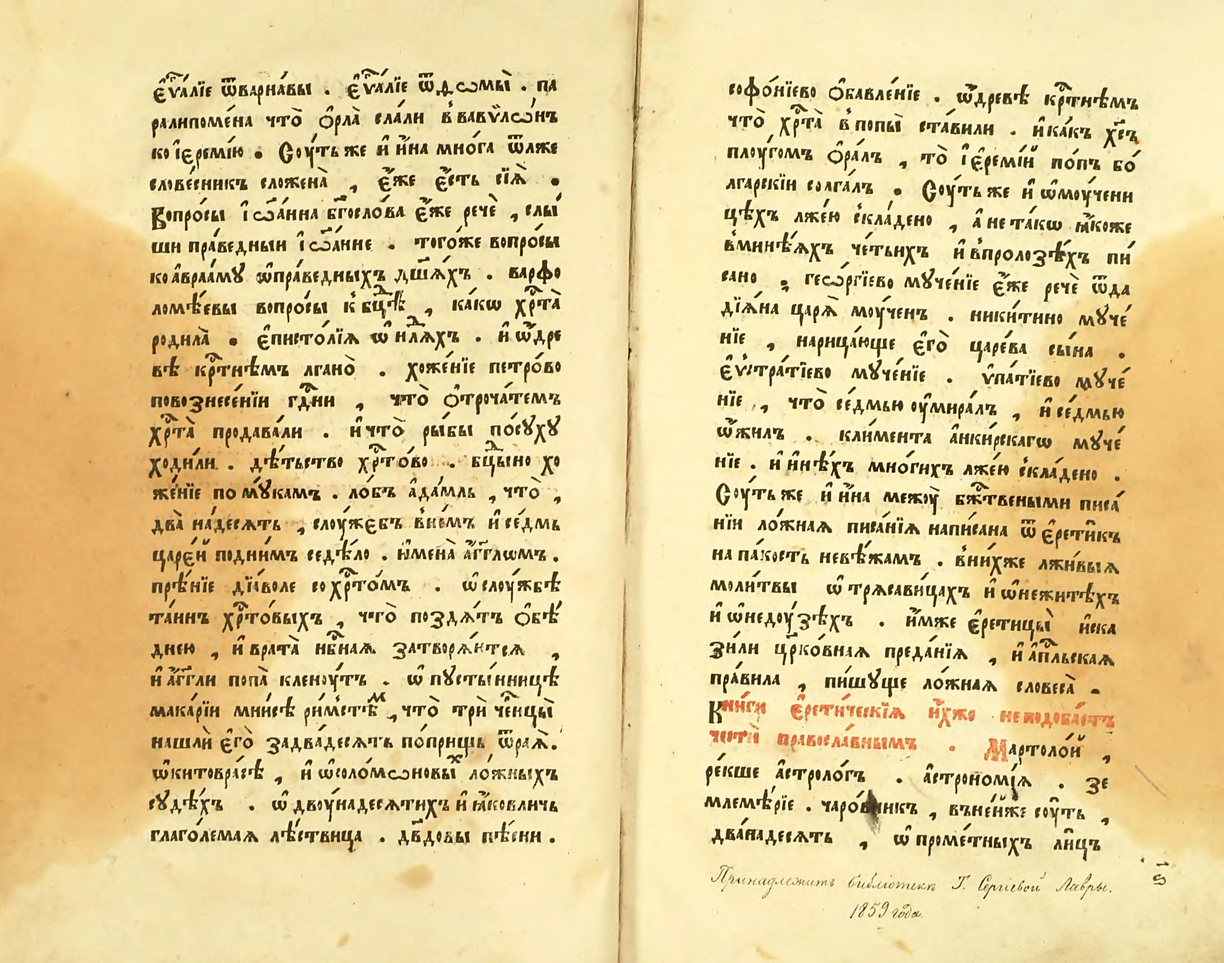 є҆ѵⷢ҇алїе ѿварна́вы . є҆ѵⷢ҇а́лїе ѿѳѡмы̀ . па
ралипоме́на что̀ ѻ҆рла̀ сла́ли в̾ вавѷлѡ́нъ
ко і҆єремі́ю . Соу́ть же и҆ и҆́на мно́га ѿ лже
слове́сникъ сложена̀ , є҆́же є҆́сть сїѧ̀ .
Вопро́сы і҆ѡа́нна бг҃осло́ва є҆́же речѐ , слы́
ши пра́ведныи і҆ѡа́нне . того́же вопро́сы
ко а҆враа́мꙋ ѡ҆пра́ведныхъ дш҃ѧ́хъ . варфо
ломѣ́евы вопро́сы к̾ бцⷣѣ , ка́кѡ хрⷭ҇та̀
родила̀ . є҆писто́лїѧ ѡ҆ нⷣлѧхъ . и҆ ѡ҆́дре
вѣ крⷭ҇тнѣмъ лгано̀ . хоже́нїе петро́во
повознесе́нїи гдⷭ҇ни , что̀ ѻ҆троча́темъ
хрⷭ҇та̀ продава́ли . и҆ что̀ ры́бы по́сꙋхꙋ
ходи́ли . дѣ́тьство хрⷭ҇то́во . бцⷣыно хо
же́нїе по мꙋкамъ . ло́бъ а҆да́мль , что̀ ,
два̀ на́десѧть , слоу́жєбъ в̾не́мъ и҆ се́дмь
царе́й подни́мъ седѣ́ло . и҆мена̀ а҆́гг҃лѡмъ .
прѣ́нїе дїа́воле со хрⷭ҇то́мъ . ѡ҆ слоу́жбѣ
та́инъ хрⷭ҇то́выхъ , что̀ поздѧ́тъ ѻ҆бѣ́
днею , и҆ врата̀ нб҃наѧ затворѧ́ютсѧ ,
и҆ а҆́гг҃ли попа̀ кленоу́тъ . ѡ҆ пꙋсты́нницѣ
мака́рїи мни́сѣ ри́мстѣⷨ , что̀ трѝ че҃нцы̀
нашлѝ є҆го̀ за два́десѧть по́прищь ѿ раѧ̀ .
ѡ҆ китовра́сѣ , и҆ ѡ҆ соломѡновыⷯ ло́жныхъ
сꙋдѣ́хъ . ѡ҆ двоу́надесѧтихъ и҆ ꙗ҆́ковличь
глаго́лемаѧ лѣ́ствица . дв҃довы пѣ́сни .
софо́нїево ѻ҆бавле́нїе . ѡ҆́древѣ крⷭ҇тнѣмъ
что̀ хрⷭ҇та̀ в̾ попы̀ ста́вили . и҆ ка́къ хс҃ъ
плоу́гомъ ѻ҆ра́лъ , то̀ і҆ере́мїй по́пъ бо́
лгарскїи солга́лъ . Соу́ть же и҆ ѡ҆ моучени
цѣхъ лже́ю скла́дено , а҆ не та́кѡ ꙗ҆́коже
в̾мине́ѧхъ че́тьихъ и҆ в̾проло́зѣхъ пи́
сано . гео́ргїево мꙋче́нїе є҆́же речѐ ѿ да
дїѧ́на царѧ̀ моу́ченъ . ники́тино мꙋче́
нїе , нарица́юще є҆го̀ царе́ва сы́на .
є҆ѵстра́тїево мꙋче́нїе . ѵ҆па́тїево мꙋче́
нїе , что̀ се́дмью оу҆мира́лъ , и҆ се́дмью
ѡ҆́жилъ . кли́мента а҆нки́рскагѡ мꙋче́
нїе . и҆ и҆нѣ́хъ мно́гихъ лже́ю скла́дено .
Соу́ть же и҆ и҆́на межоу̀ бжⷭ҇твеными писа́
нїи ло́жнаѧ писа́нїѧ напи́сана ѿ є҆рети́къ
на па́кость невѣ́жамъ . в̾ни́хже лжи́выѧ
моли́твы ѡ҆ трѧса́вицахъ и҆ ѡ҆ нежи́тѣхъ
и҆ ѡ҆ недоу́зѣхъ . и҆́мже є҆ретицы̀ и҆ска
зи́ли цр҃ко́внаѧ преда́нїѧ , и҆ а҆пⷭ҇льскаѧ
пра́вила , пи́шꙋще ло́жнаѧ словеса̀ .
Кни́ги є҆рети́ческїѧ и҆́хже не подоба́етъ
честѝ правосла́внымъ . Мартоло́й ,
ре́кше а҆строло́гъ . а҆строно́мїѧ . зе
млемѣ́рїе . чаро́вникъ , въне́йже соу́ть ,
два́надесѧть , ѡ҆ проме́тныхъ ли́цъ
Принадлежитъ библіотекѣ Т. Сергіевой Лавры.
1859 года.